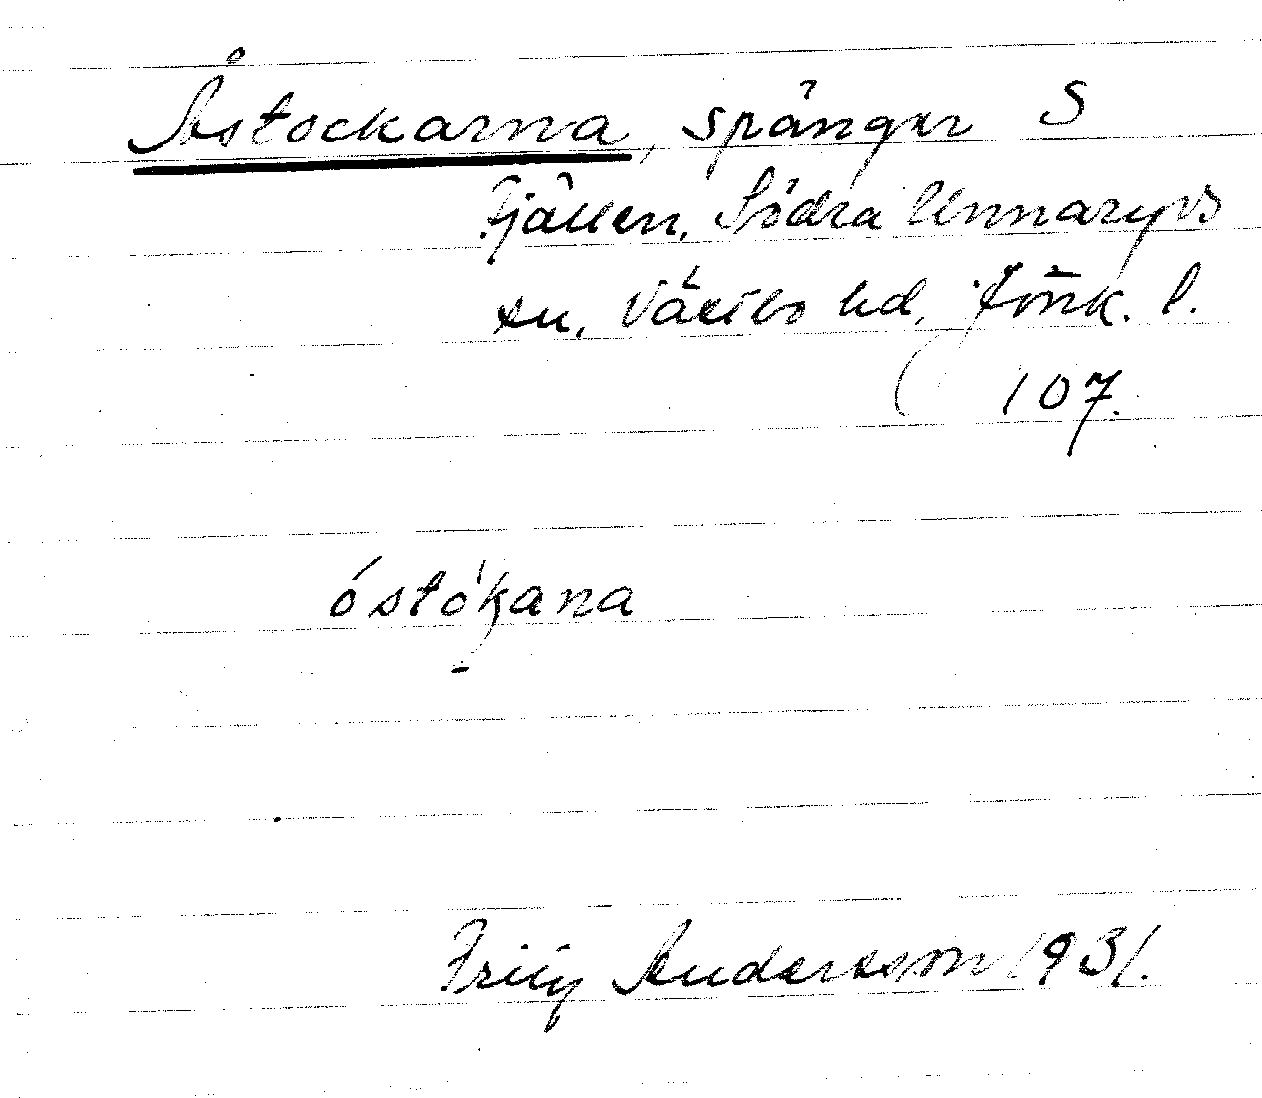 Åstockarna, spångar S
Fjällen, Södra Unnaryds
sn, Västbo hd, Jönk. l.
107.
óstókana
Andersson 1931.